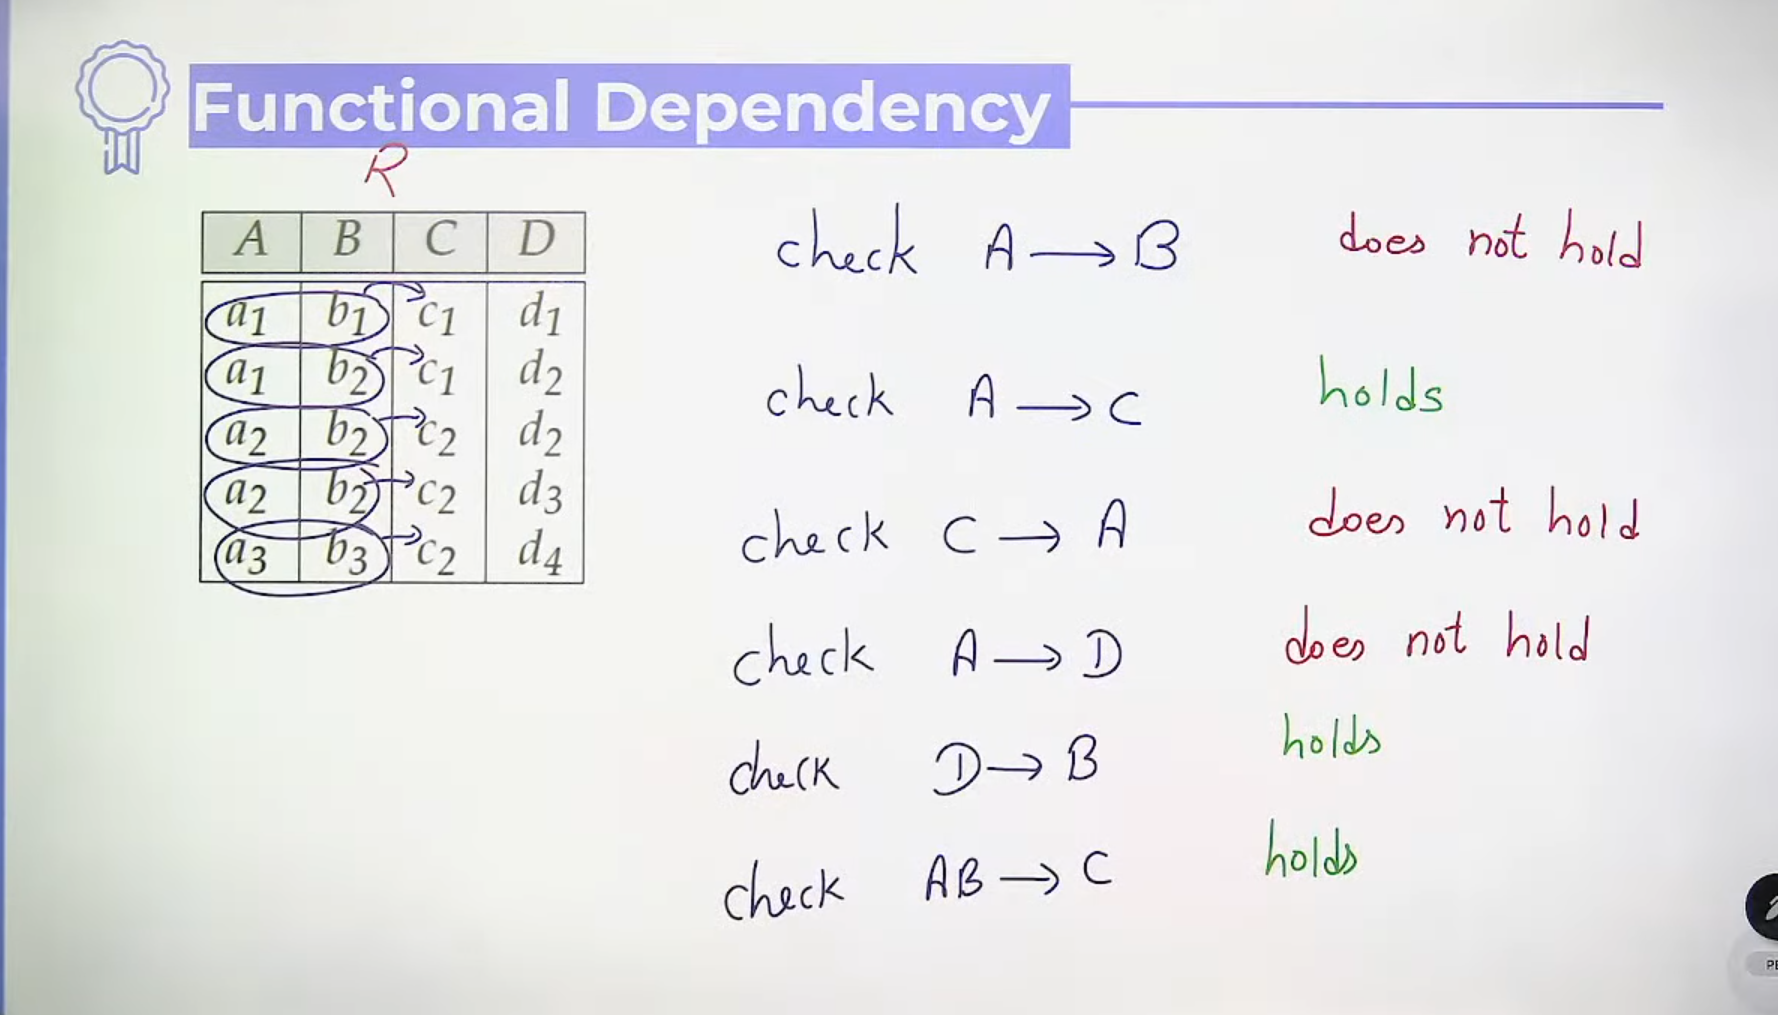 Functional Dependency
R
A B C D
a1 b1 c1 d1
a1 b2 c1 d2
a2 b2 c2 d2
a2 b2 c2 d3
a3 b3 c2 d4
check A → B does not hold
check A → C holds
check C → A does not hold
check A → D does not hold
check D → B holds
check AB → C holds